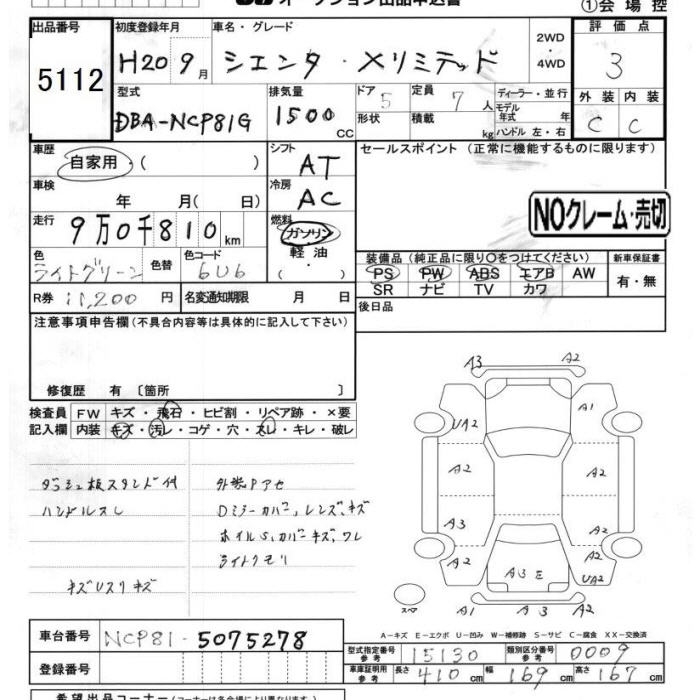 ①会場控
出品番号 初度登録年月 車名・グレード 評価点
5112 H20 9月 シエンタ・Xリミテッド 2WD・4WD 3
型式 排気量 ドア 5 定員 7人 ディーラー・並行 外装 内装
DBA-NCP81G 1500cc 形状 積載 kg モデル年式 年 ハンドル 左・右 C C
車歴 自家用・( ) シフト AT セールスポイント(正常に機能するものに限ります)
車検 年 月( 日) 冷房 AC
NOクレーム・売切
走行 9万0千810km 燃料 ガソリン・軽油
装備品(純正品に限り○をつけてください) 新車保証書
色 ライトグリーン 色替 色コード 6U6 PS PW ABS エアB AW 有・無
SR ナビ TV カワ
R券 11,200円 名変通知期限 月 日 後日品
注意事項申告欄(不具合内容等は具体的に記入して下さい)
修復歴 有〔箇所 〕
検査員 FW キズ・飛石・ヒビ割・リペア跡・×要
記入欄 内装 キズ・汚レ・コゲ・穴・スレ・キレ・破レ
ダッシュ板スタンド付 外装Pアセ
ハンドルスレ Dミラーカバー、レンズ、キズ
ホイルS、カバーキズ、ワレ
ライトクモリ
キズUスリキズ
A3 A2
UA2 A1
A2 A2
A3 A2
A2 A3 E A2 UA2
スペア A1 A3 A2
A-キズ E-エクボ U-凹み W-補修跡 S-サビ C-腐食 XX-交換済
車台番号 NCP81-5075278
登録番号
型式指定番号 参考 15130 類別区分番号 参考 0009
車庫証明用 参考 長さ 410cm 幅 169cm 高さ 167cm